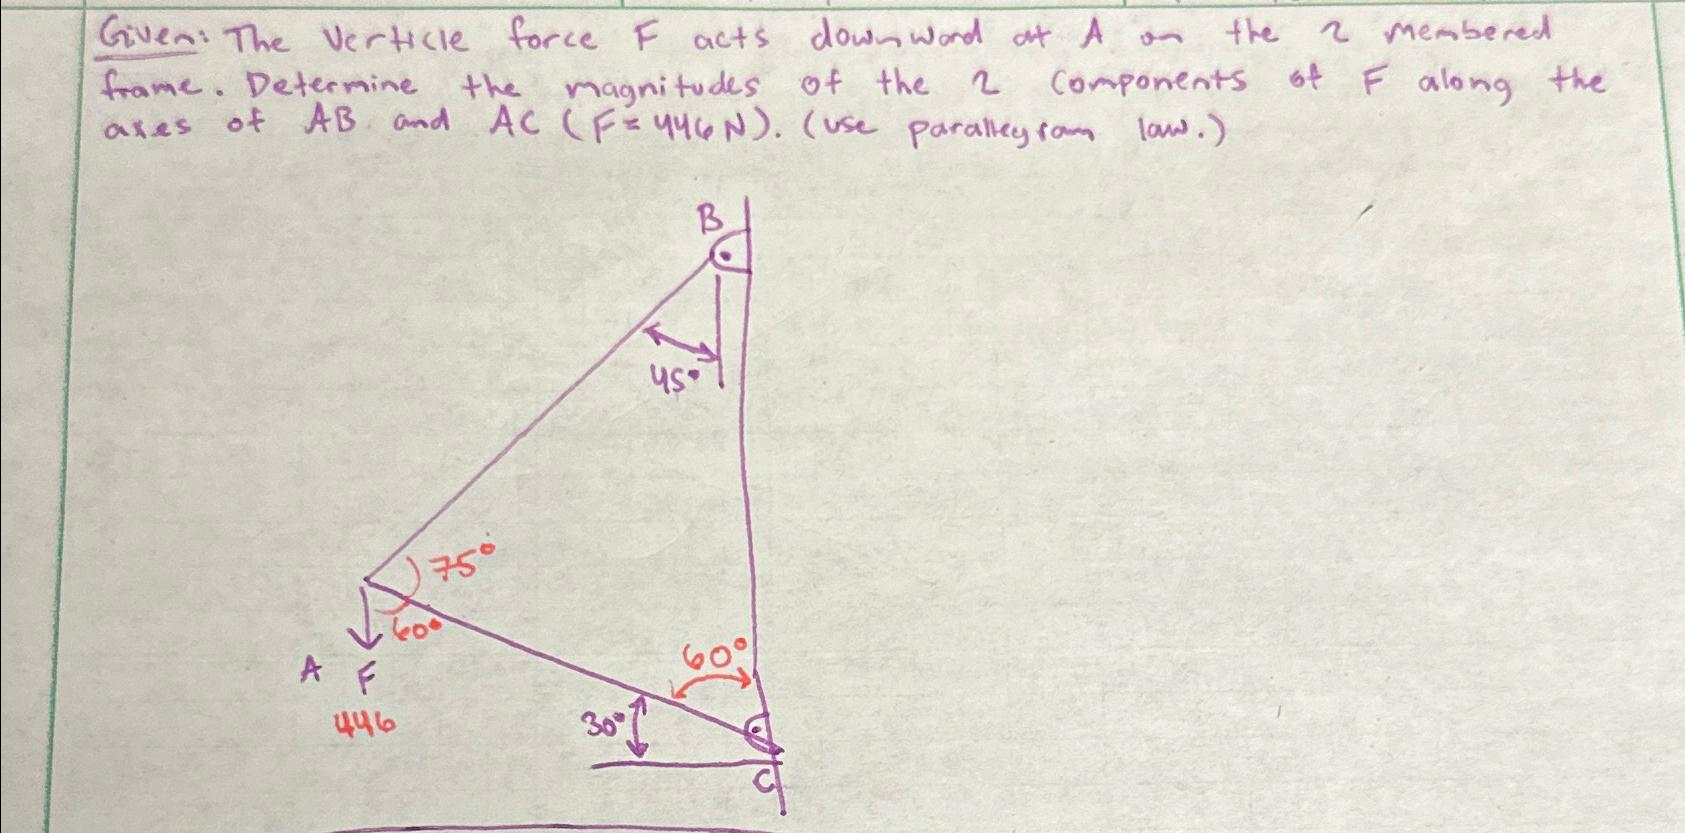 Given: The verticle force F acts downward at A on the 2 membered
frame. Determine the magnitudes of the 2 components of F along the
axes of AB and AC (F= 446N). (use parallegram law.)
B
45°
75°
60°
60°
A F
446
30°
C